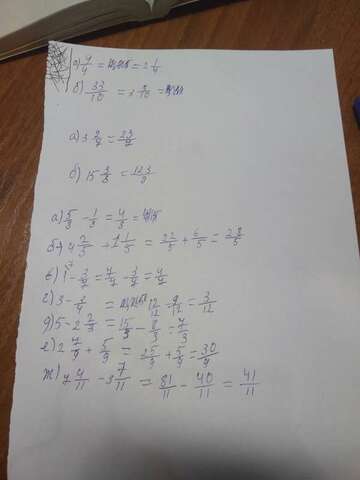 а) 9/4 = = 2 1/4
б) 33/10 = 3 3/10 =
а) 3 2/7 = 23/7
б) 15 3/8 = 123/8
а) 5/3 - 1/3 = 4/3 =
б) 4 2/5 + 1 1/5 = 22/5 + 6/5 = 28/5
в) 1 - 3/7 = 7/7 - 3/7 = 4/7
г) 3 - 3/4 = 12/12 - 9/12 = 3/12
д) 5 - 2 2/3 = 15/3 - 8/3 = 7/3
е) 2 7/9 + 5/9 = 25/9 + 5/9 = 30/9
ж) 7 4/11 - 3 7/11 = 81/11 - 40/11 = 41/11